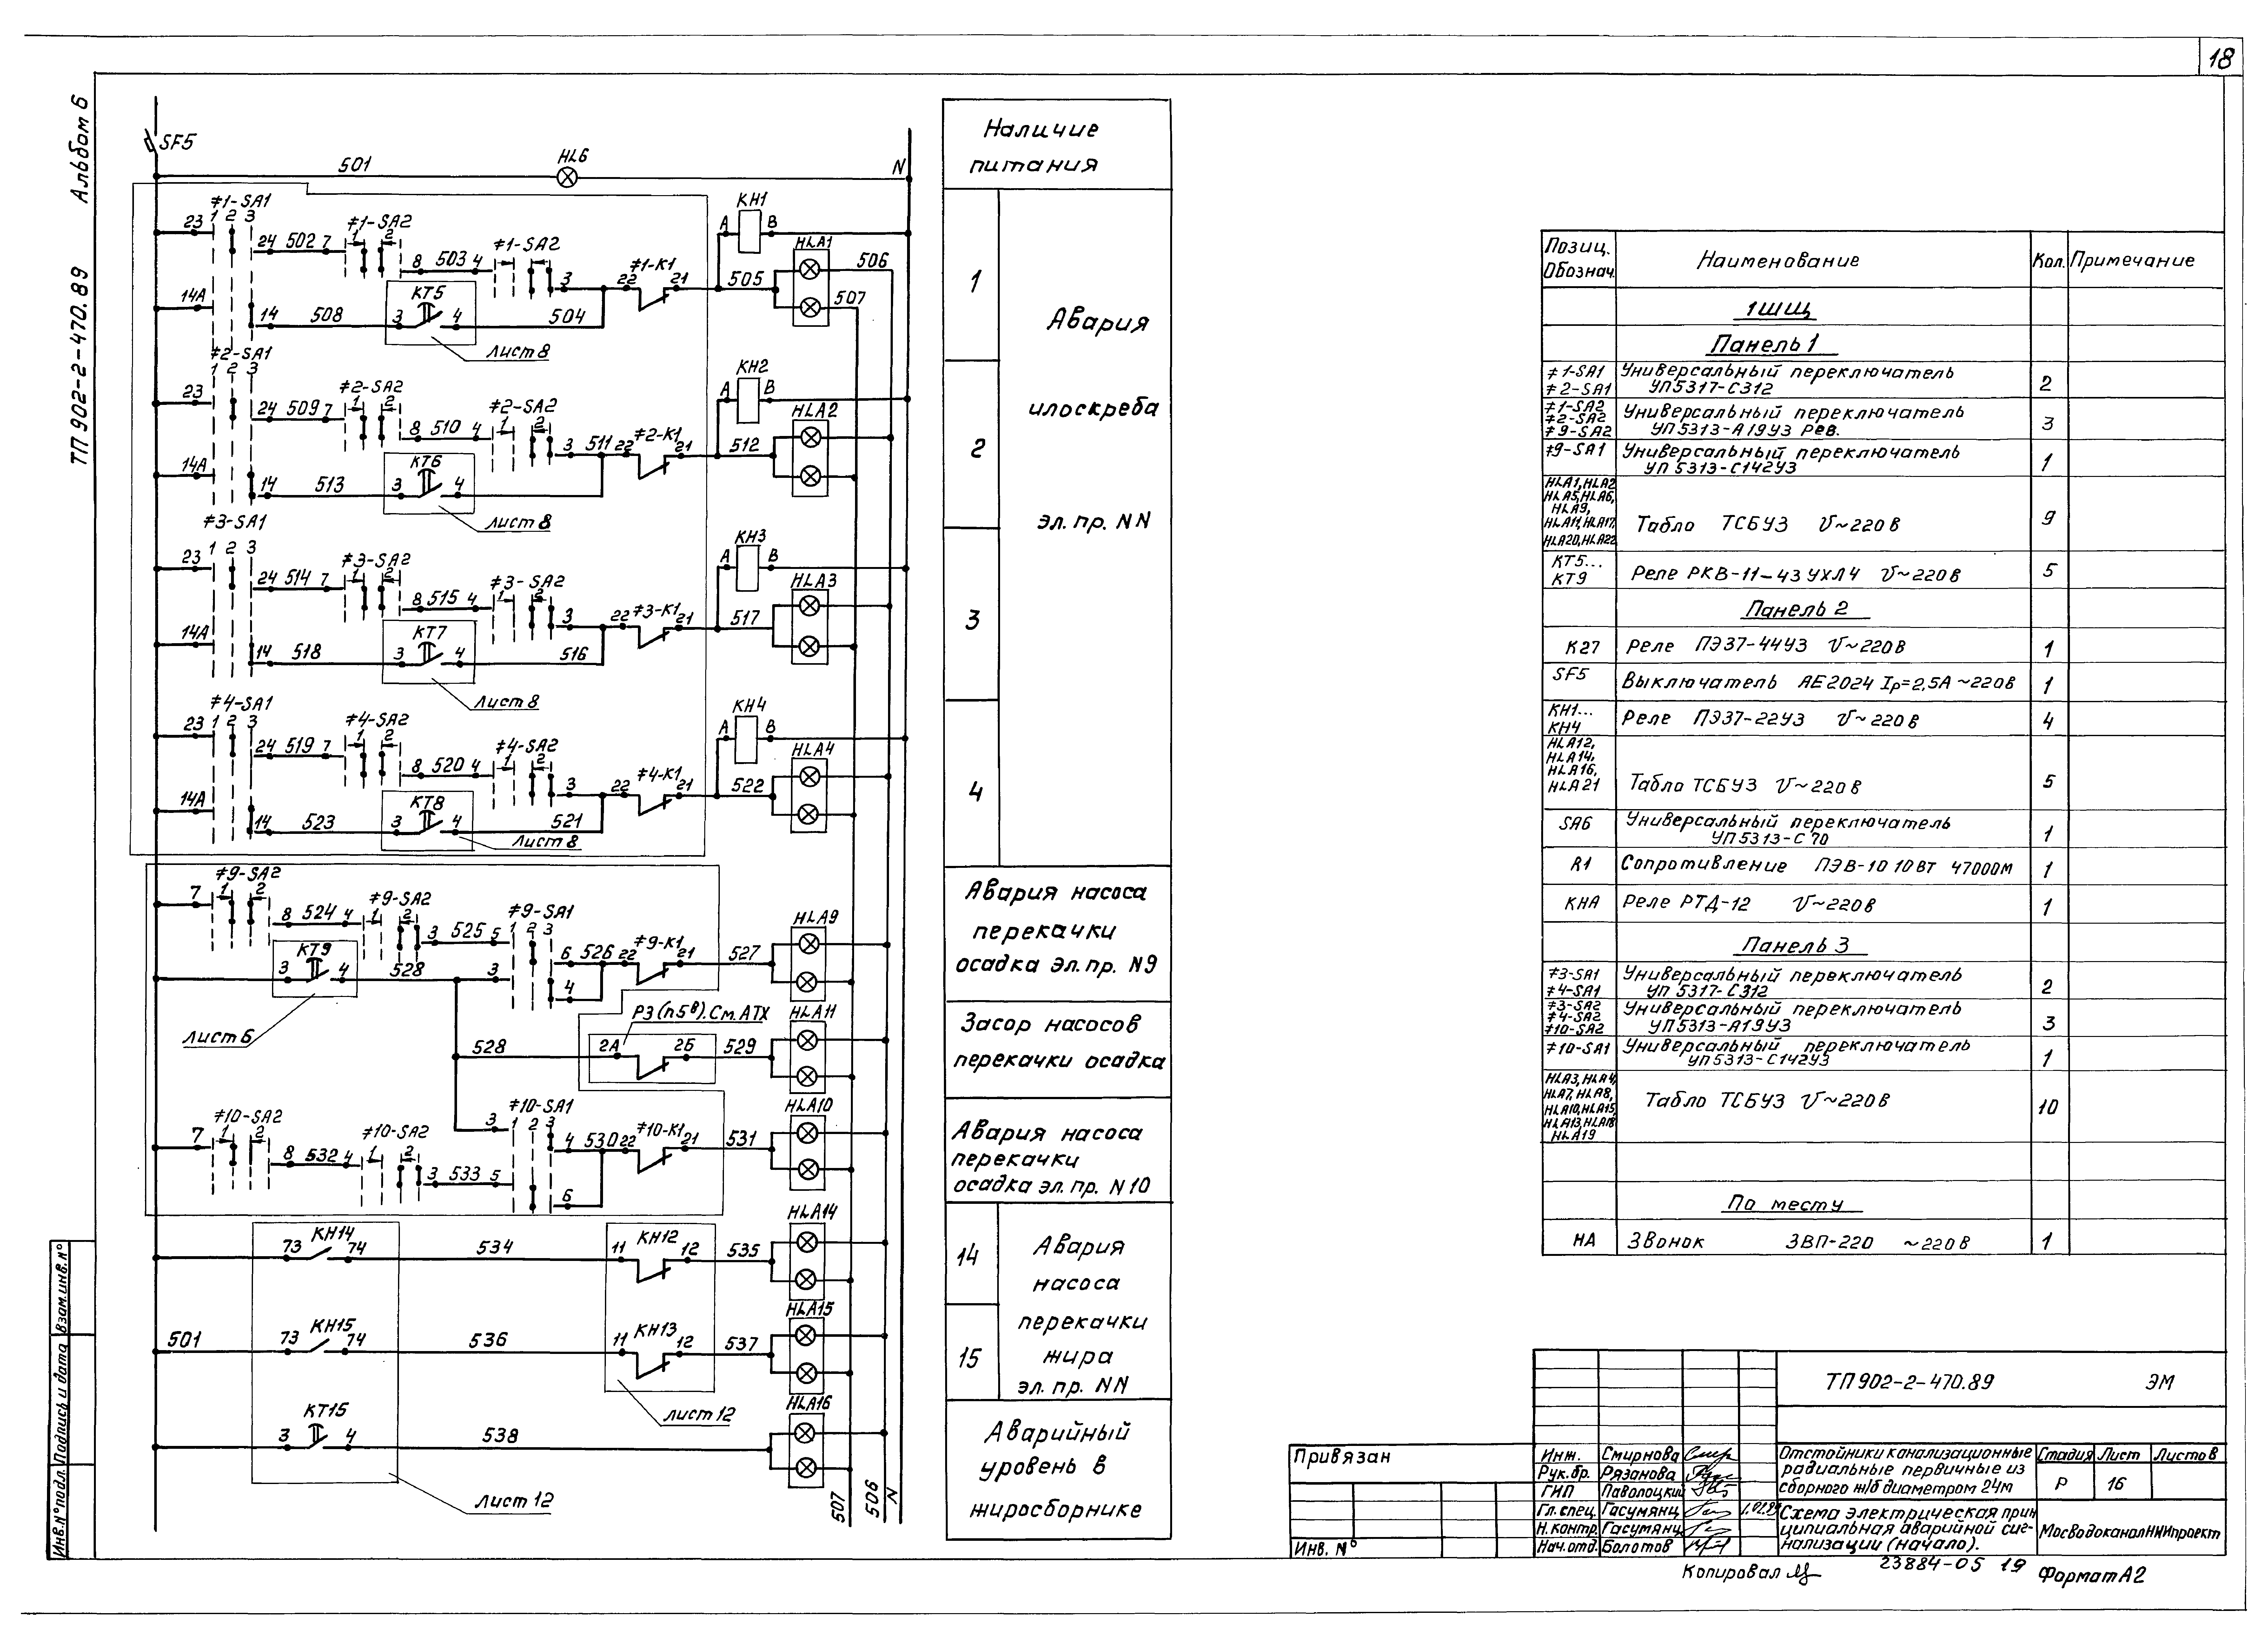 18
ТП 902-2-470.89 Альбом 6
SF5
501 HL6 N
≠1-SA1
1 2 3
23 24 502 7
≠1-SA2
1 2
8 503 4
≠1-SA2
3 22 ≠1-К1 21
КН1
А В
505
HLA1
506
507
14А 14 508 3 КТ5 4 504
Лист 8
≠2-SA1
1 2 3
23 24 509 7
≠2-SA2
1 2
8 510 4
≠2-SA2
1 2
3 511 22 ≠2-К1 21
КН2
А В
512
HLA2
14А 14 513 3 КТ6 4
Лист 8
≠3-SA1
1 2 3
23 24 514 7
≠3-SA2
1 2
8 515 4
≠3-SA2
1 2
3 22 ≠3-К1 21
КН3
А В
517
HLA3
14А 14 518 3 КТ7 4 516
Лист 8
≠4-SA1
1 2 3
23 24 519 7
≠4-SA2
1 2
8 520 4
≠4-SA2
1 2
3 22 ≠4-К1 21
КН4
А В
522
HLA4
14А 14 523 3 КТ8 4 521
Лист 8
≠9-SA2
7 1 2
8 524 4
≠9-SA2
1 2
3 525 5
≠9-SA1
1 2 3
6 526 22 ≠9-К1 21
527
HLA9
3 КТ9 4 528 3 4
Лист 6
Р3(п5в). См. АТХ
528 2А 2Б 529
HLA11
≠10-SA2
7 1 2
8 532 4
≠10-SA2
1 2
3 533 5
≠10-SA1
3 1 2 3
4 530 22 ≠10-К1 21
6
531
HLA10
73 КН14 74 534 11 КН12 12 535
HLA14
501 73 КН15 74 536 11 КН13 12 537
HLA15
Лист 12
3 КТ15 4 538
HLA16
Лист 12
507 506 N
Наличие
питания
1
2
3
4
Авария
илоскреба
эл. пр. NN
Авария насоса
перекачки
осадка эл. пр. N9
Засор насосов
перекачки осадка
Авария насоса
перекачки
осадка эл. пр. N10
14
15
Авария
насоса
перекачки
жира
эл. пр. NN
Аварийный
уровень в
жиросборнике
Позиц. Обознач. Наименование Кол. Примечание
1ШЩ
Панель 1
≠1-SA1
≠2-SA1 Универсальный переключатель
УП5317-С312 2
≠1-SA2
≠2-SA2
≠9-SA2 Универсальный переключатель
УП5313-А19У3 Рев. 3
≠9-SA1 Универсальный переключатель
УП 5313-С142У3 1
HLA1, HLA2
HLA5, HLA6,
HLA9,
HLA11, HLA17,
HLA20, HLA22 Табло ТСБУЗ U~220В 9
КТ5...
КТ9 Реле РКВ-11-43 УХЛ4 U~220В 5
Панель 2
К27 Реле ПЭ37-44У3 U~220В 1
SF5 Выключатель АЕ2024 Iр=2,5А ~220В 1
КН1...
КН4 Реле ПЭ37-22У3 U~220В 4
HLA12,
HLA14,
HLA16,
HLA21 Табло ТСБУЗ U~220В 5
SA6 Универсальный переключатель
УП5313-С70 1
R1 Сопротивление ПЭВ-10 10Вт 4700ОМ 1
КНА Реле РТД-12 U~220В 1
Панель 3
≠3-SA1
≠4-SA1 Универсальный переключатель
УП 5317-С312 2
≠3-SA2
≠4-SA2
≠10-SA2 Универсальный переключатель
УП5313-А19У3 3
≠10-SA1 Универсальный переключатель
УП5313-С142У3 1
HLA3, HLA4,
HLA7, HLA8,
HLA10, HLA15,
HLA13, HLA18
HLA19 Табло ТСБУЗ U~220В 10
По месту
НА Звонок ЗВП-220 ~220В 1
ТП 902-2-470.89 ЭМ
Привязан
Инв. №
Инж. Смирнова
Рук. бр. Рязанова
ГИП Паволоцкий
Гл. спец. Гасумянц
Н. контр. Гасумянц
Нач. отд. Болотов
Отстойники канализационные
радиальные первичные из
сборного ж/б диаметром 24м
Стадия Лист Листов
Р 16
Схема электрическая прин
ципиальная аварийной сиг-
нализации (начало).
МосводоканалНИИпроект
Копировал
23884-05 19
Формат А2
Инв. № подл. Подпись и дата Взам. инв. №